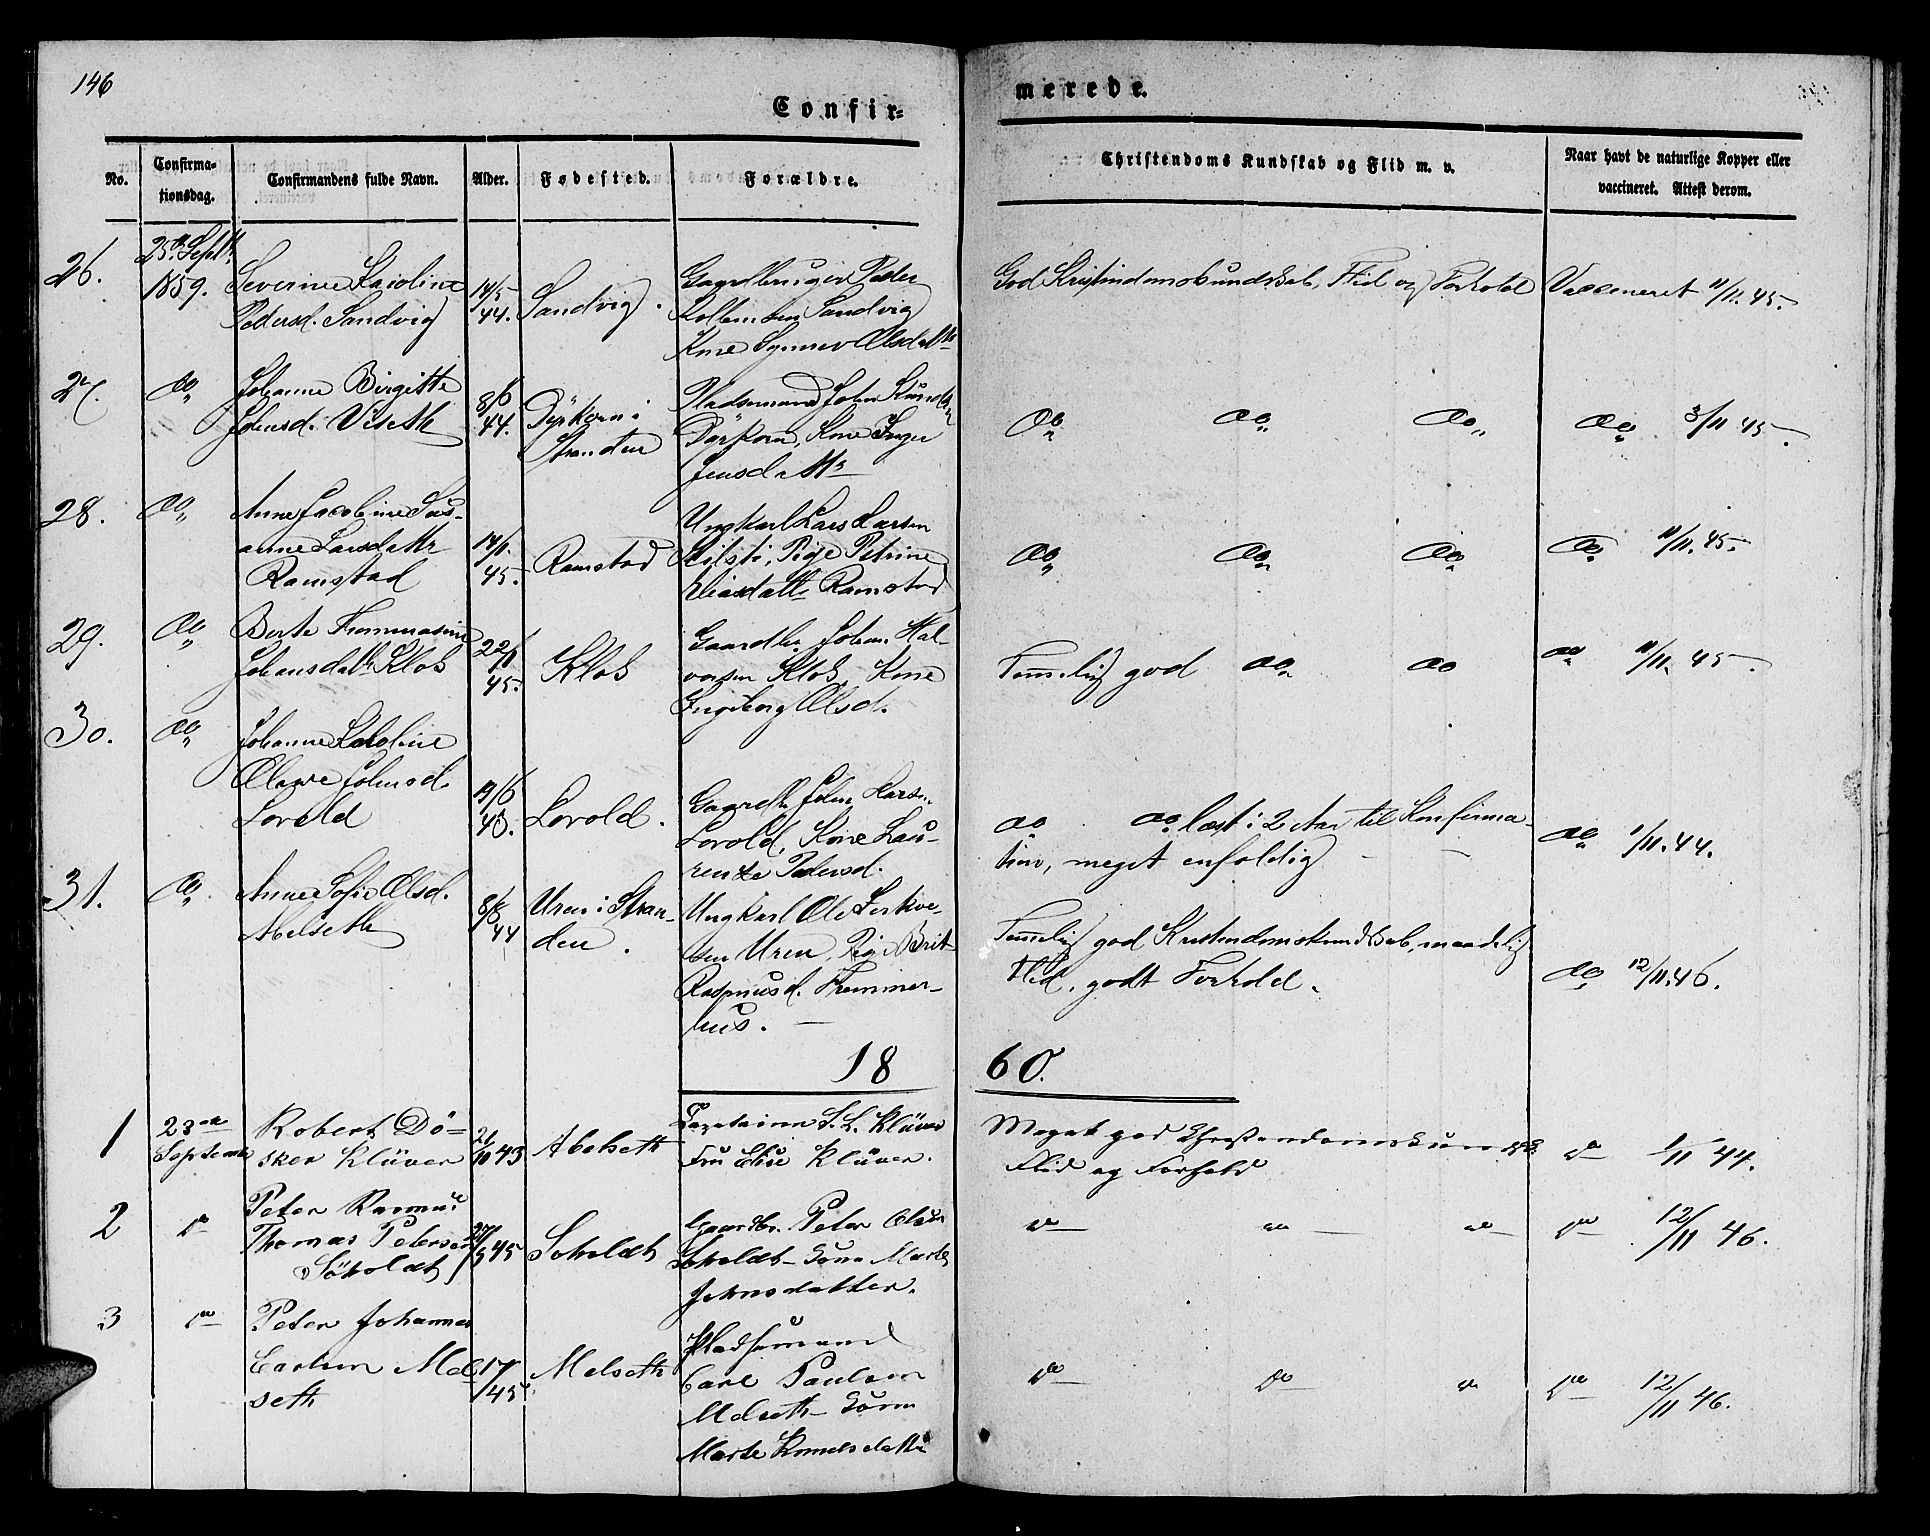 146
Confir=
merede.
No.
Confirma-
tionsdag.
Confirmandens fulde Navn.
Alder.
Fødested.
Forældre.
Christendoms Kundskab og Flid m. v.
Naar havt de naturlige Kopper eller
vaccineret. Attest derom.
26.
25de Septb.
1859.
Severine Karoline
Pedersd. Sandvig
14/5
44.
Sandvig.
Gaardbruger Peder
Sandvig
Kone Synnev Olsdattr
God Kristendomskundskab, Flid og Forhold
Vaccineret 11/11. 45.
27.
Do
Johanne Birgitte
Johnsd. Viseth
8/6
44.
Dyrkorn i
Stranden
Pladsemand John Knudsen
Dyrkorn, Kone Inger
Jensdattr
Do Do Do
Do 3/11 45.
28.
Do
Anne Jacobine Sus-
anne Larsdattr
Ramstad
14/1.
45.
Ramstad
Ungkarl Lars Larsen
Pige Petrine
Ramstad
Do Do Do
Do 11/11. 45.
29.
Do
Berte Thommasine
Johansdattr Klok
22/1
45.
Klok
Gaardbr. Johan Hal-
vorsen Klok, Kone
Ingeborg Olsd.
Temelig god Do Do
Do 11/11. 45.
30.
Do
Johanne Karoline
Olave Johnsd.
Lovold
19/6
43.
Lovold.
Gaardb. John Lars.
Lovold, Kone Lau-
rentze Pedersd.
Do Do læst i 2 Aar til Konfirma-
tion, meget enfoldig
Do 1/11. 44.
31.
Do
Anne Sofie Olsd.
Melseth
8/8
44
Uren i Stran-
den.
Ungkarl Ole
sen Uren, Pige Brit
Rasmusd. Fremmer-
hus.
Temelig god Kristendomskundskab, maadelig
Flid, godt Forhold.
Do 12/11. 46.
18
60.
1
23de
September
Robert Dö-
sker Klüver
21/10 43
Abelseth
Captainen S. L. Klüver
Fru Elise Klüver.
Meget god Christendomskundsk.
Flid og Forhold
do 1/11 44.
2
do
Peter Rasmus
Thomas Petersen
Söholdt
27/3 45
Soholdt
Gaardbr. Peter Olsen
Soholdt Kone Marte
Johnsdatter.
do do do
do 12/11 46.
3
do
Peter Johannes
Carlsen Mel-
seth
17/ 45
Melseth
Pladsemand
Carl Paulsen
Melseth Kone
Marte Knudsdatter
do do do
do 12/11 46.